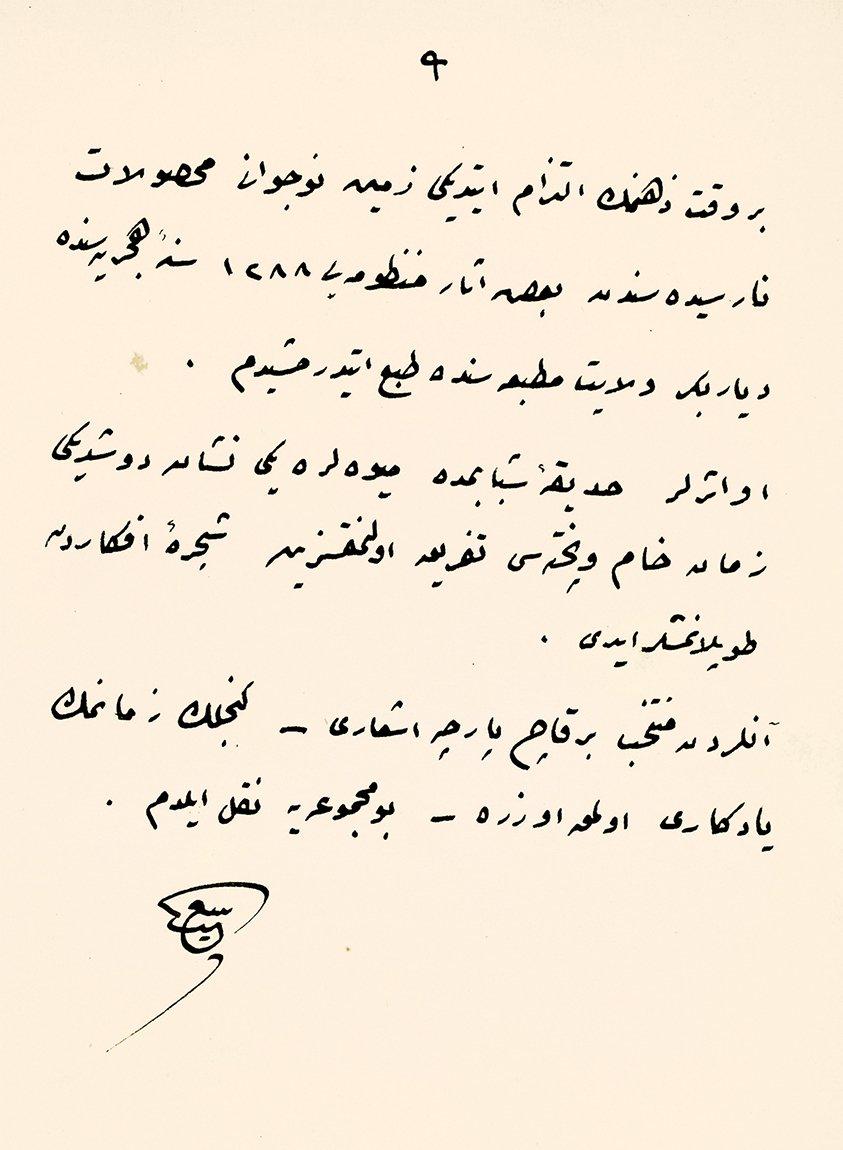 ٩
بر وقت ذهنمك التزام ايتديكى زمين نوجوانى محصولات
نارسيده سندن بعض آثار منظومه يى ١٢٨٨ سنۀ هجريه سنده
ديار بكر ولايت مطبعه سنده طبع ايتدرمشيدم .
او اثرلر حديقۀ شبابمده ميوه لره يكى نشان دوشديكى
زمان خام و پخته سى تفريق اولنمقسزين شجرۀ افكاردن
طوپلانمشلر ايدى .
آنلردن منتخب بر قاچ پارچه اشعارى – كنجلك زمانمك
يادكارى اولمق اوزره – بو مجموعه يه نقل ايلدم .